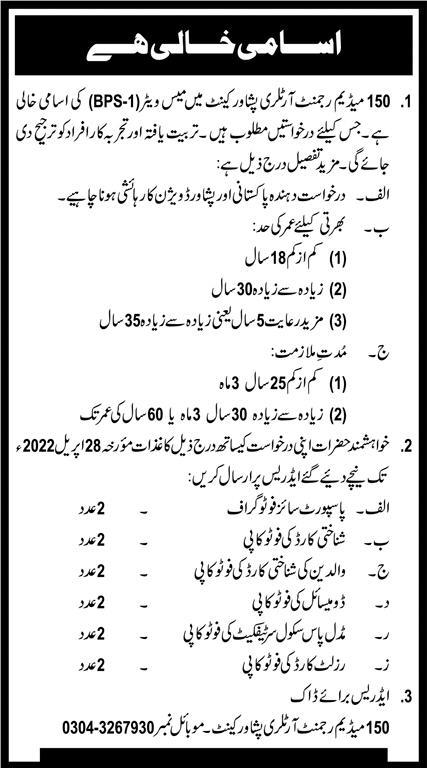 اسامی خالی ہے
1. 150 میڈیم رجمنٹ آرٹلری پشاور کینٹ میں میس ویٹر (BPS-1) کی اسامی خالی
ہے۔ جس کیلئے درخواستیں مطلوب ہیں۔ تربیت یافتہ اور تجربہ کار افراد کو ترجیح دی
جائے گی۔ مزید تفصیل درج ذیل ہے:
الف۔ درخواست دہندہ پاکستانی اور پشاور ڈویژن کا رہائشی ہونا چاہیے۔
ب۔ بھرتی کیلئے عمر کی حد:
(1) کم از کم 18 سال
(2) زیادہ سے زیادہ 30 سال
(3) مزید رعایت 5 سال یعنی زیادہ سے زیادہ 35 سال
ج۔ مُدتِ ملازمت:
(1) کم از کم 25 سال 3 ماہ
(2) زیادہ سے زیادہ 30 سال 3 ماہ یا 60 سال کی عمر تک
2. خواہشمند حضرات اپنی درخواست کیساتھ درج ذیل کاغذات مؤرخہ 28 اپریل 2022ء
تک نیچے دیئے گئے ایڈریس پر ارسال کریں:
الف۔ پاسپورٹ سائز فوٹو گراف ۔ 2 عدد
ب۔ شناختی کارڈ کی فوٹو کاپی ۔ 2 عدد
ج۔ والدین کی شناختی کارڈ کی فوٹو کاپی ۔ 2 عدد
د۔ ڈومیسائل کی فوٹو کاپی ۔ 2 عدد
ر۔ مڈل پاس سکول سرٹیفکیٹ کی فوٹو کاپی ۔ 2 عدد
ز۔ رزلٹ کارڈ کی فوٹو کاپی ۔ 2 عدد
3. ایڈریس برائے ڈاک
150 میڈیم رجمنٹ آرٹلری پشاور کینٹ۔ موبائل نمبر 0304-3267930